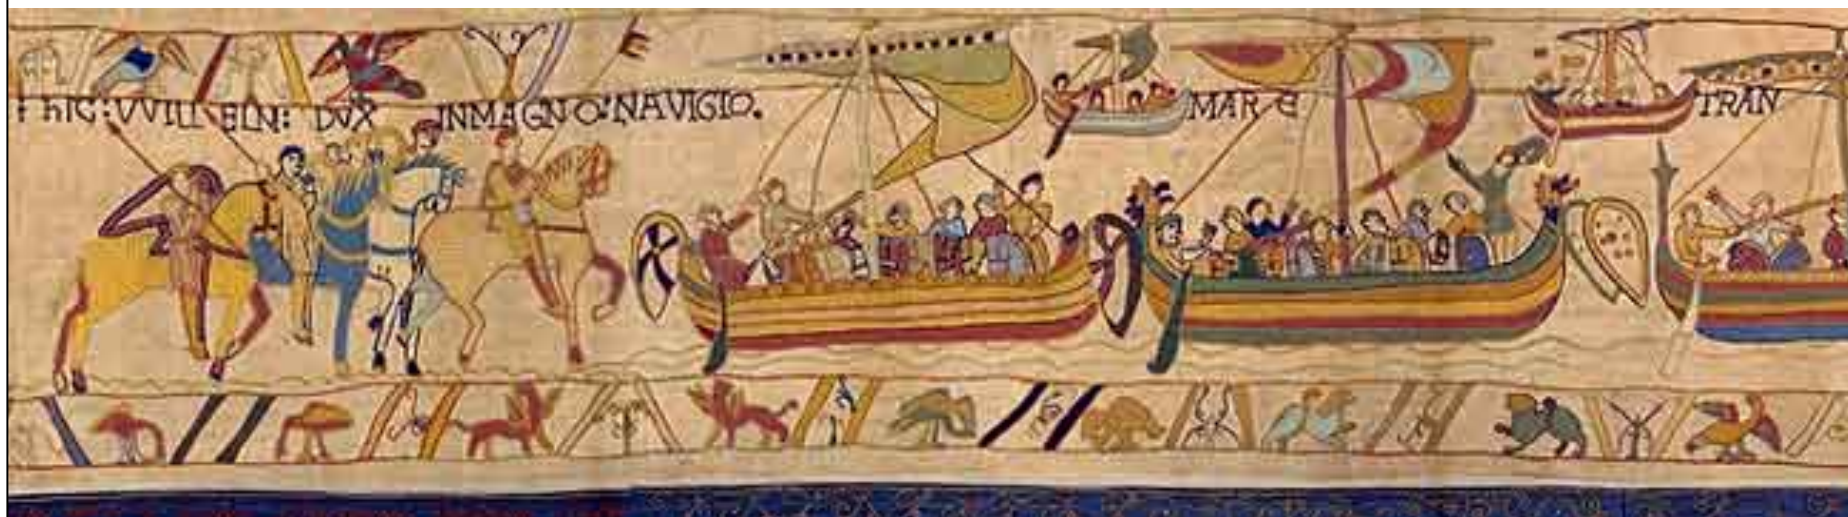 : hIC : VVILLELM : DVX IN MAGNO : NAVIGIO . MARE TRAN